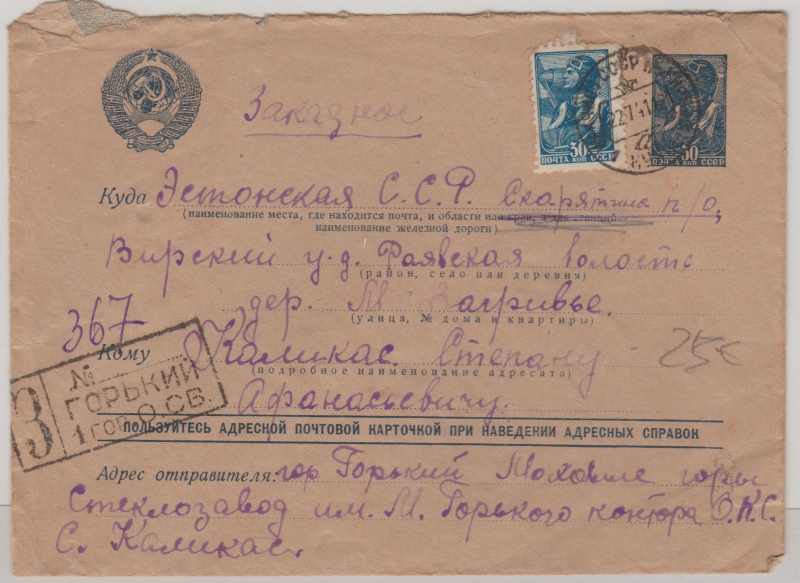 Заказное
30
ПОЧТА КОП СССР
30
ПОЧТА КОП СССР
22741
Куда Эстонская С.С.Р. Скарятина п/о,
(наименование места, где находится почта, и области или края, а для станций
наименование железной дороги)
Вирский у-д. Раявская волость
(район, село или деревня)
дер. М Загривье.
(улица, № дома и квартиры)
367
Кому Каликас. Степану
(подробное наименование адресата)
25€
Афанасьевичу.
З
№
ГОРЬКИЙ
1 ГОР.О.СБ.
ПОЛЬЗУЙТЕСЬ АДРЕСНОЙ ПОЧТОВОЙ КАРТОЧКОЙ ПРИ НАВЕДЕНИИ АДРЕСНЫХ СПРАВОК
Адрес отправителя: гор Горький Моховые горы
Стеклозавод им. М. Горького контора О.К.С.
С. Каликас.